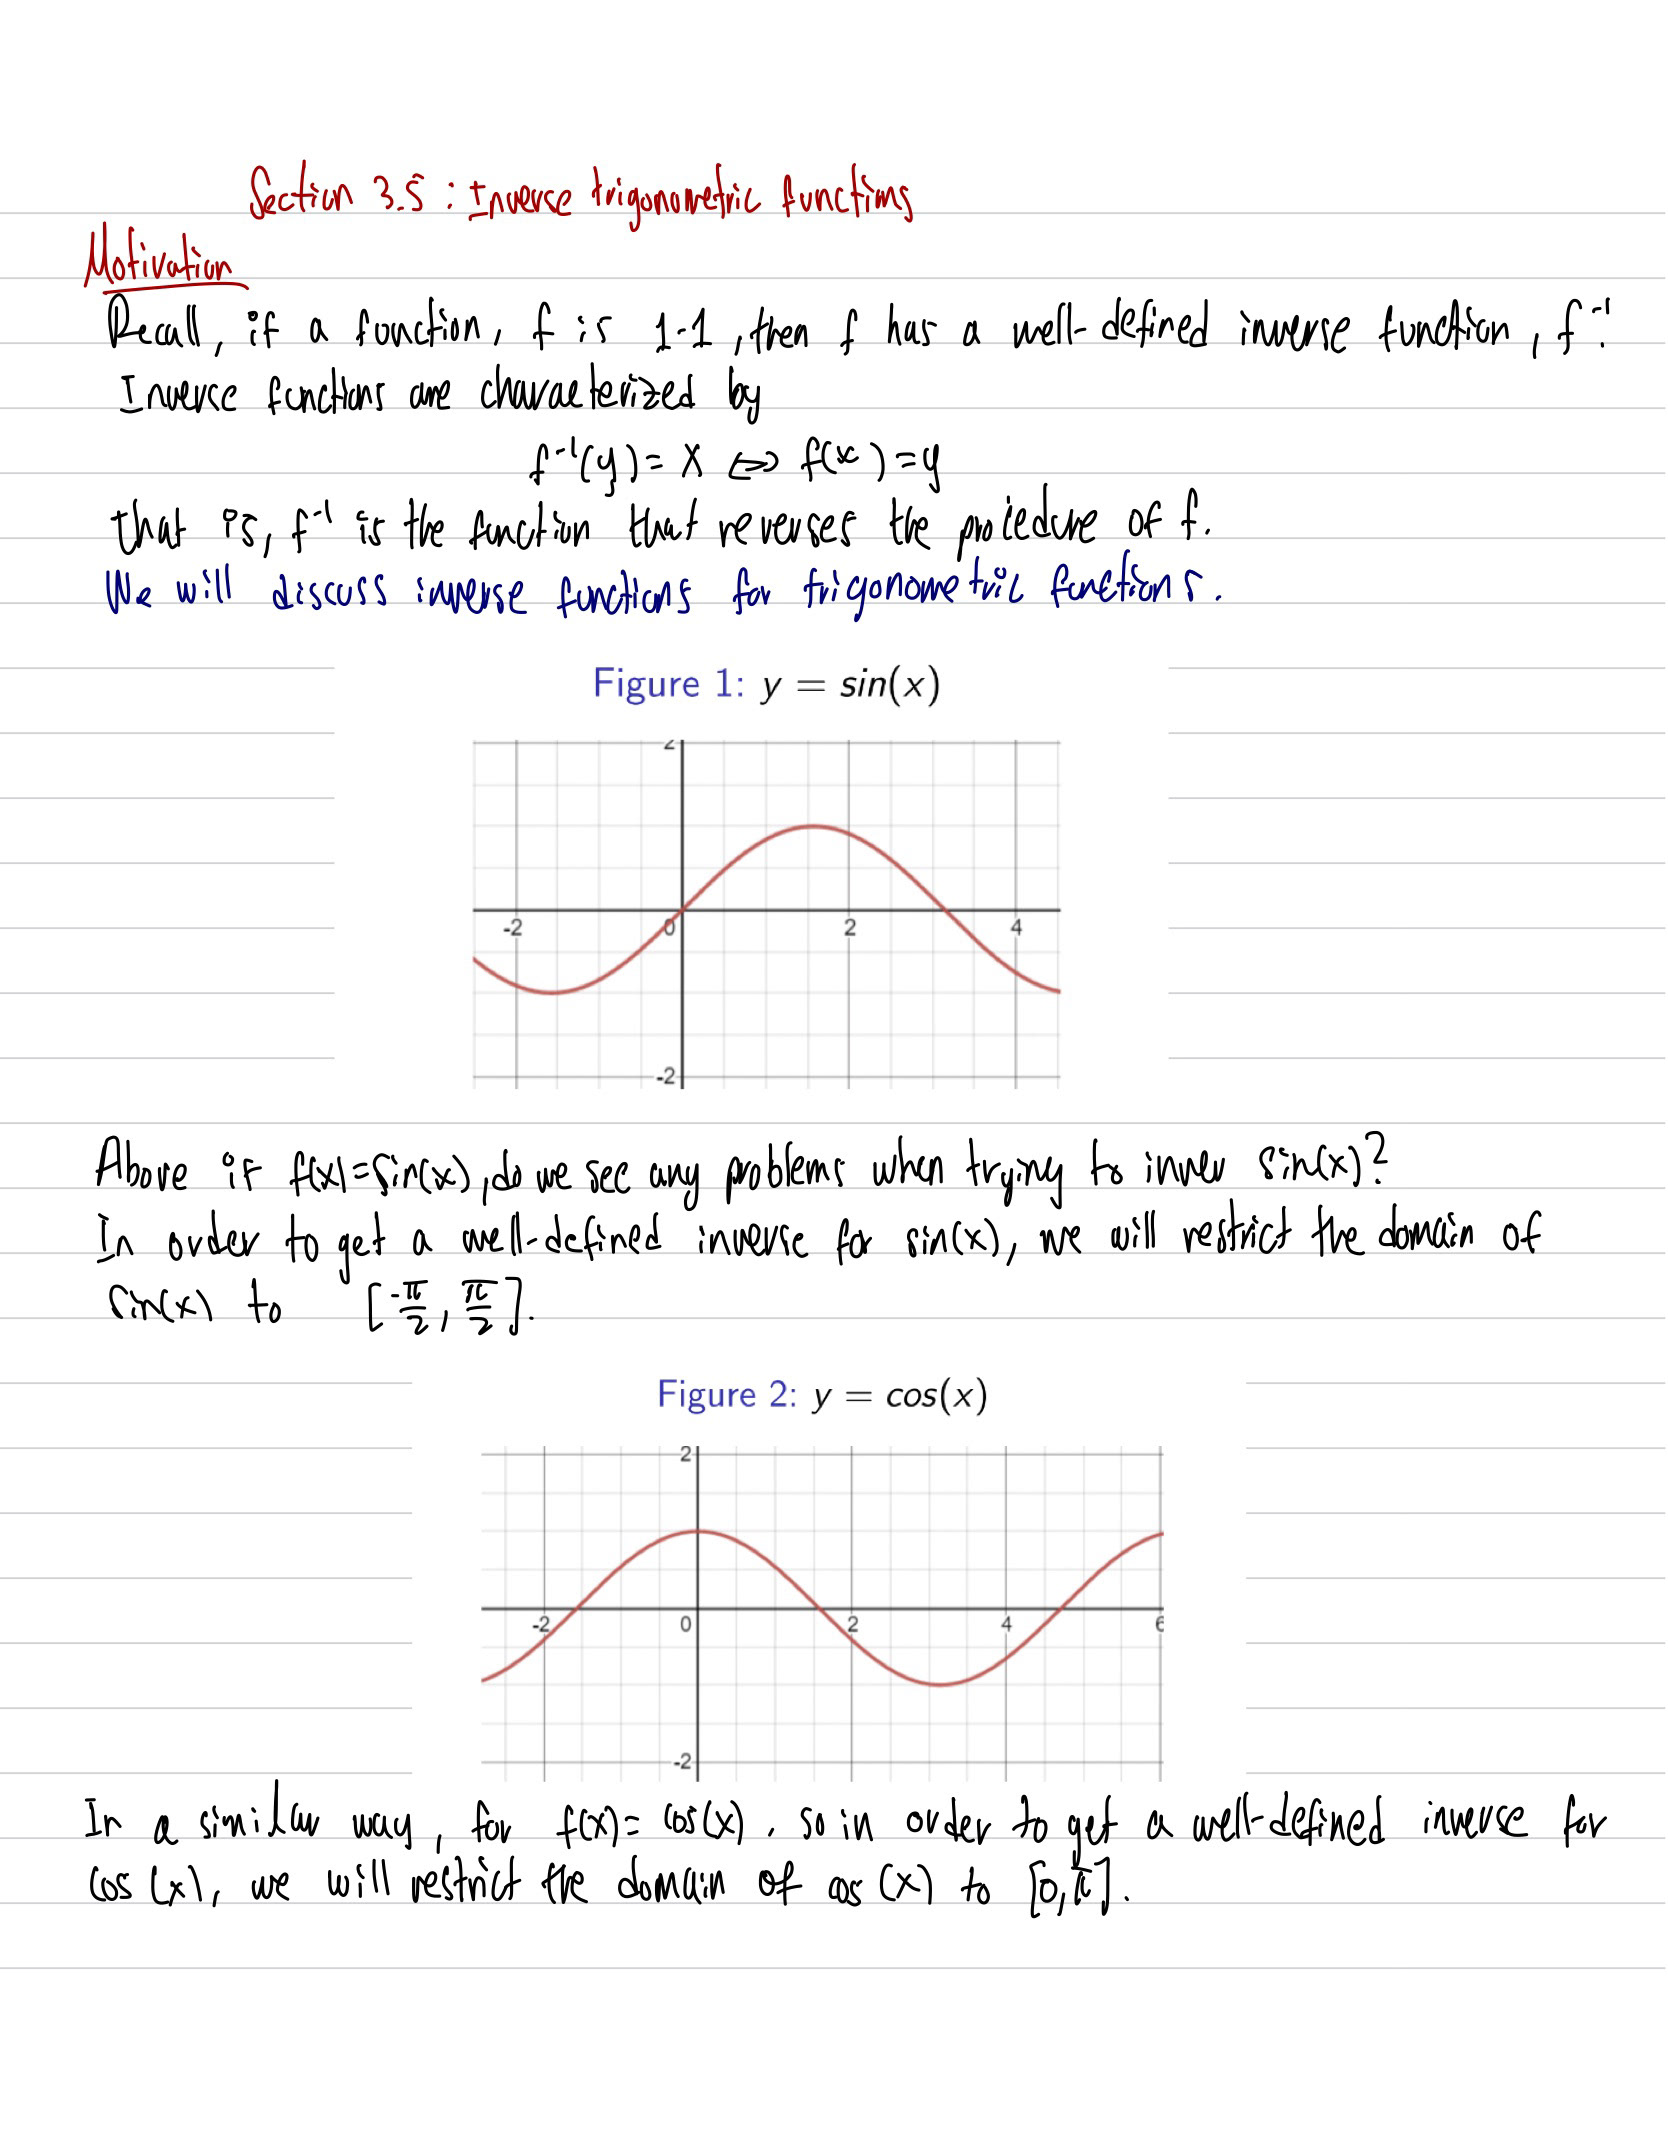 Section 3.5 : Inverse trigonometric functions
Motivation
Recall, if a function, f is 1-1, then f has a well-defined inverse function, f⁻¹.
Inverse functions are characterized by
f⁻¹(y) = x ⇔ f(x) = y
that is, f⁻¹ is the function that reverses the procedure of f.
We will discuss inverse functions for trigonometric functions.
Figure 1: y = sin(x)
2
-2 0 2 4
-2
Above if f(x)=sin(x), do we see any problems when trying to inver sin(x)?
In order to get a well-defined inverse for sin(x), we will restrict the domain of
sin(x) to [-π/2, π/2].
Figure 2: y = cos(x)
2
-2 0 2 4 6
-2
In a similar way, for f(x) = cos(x), so in order to get a well-defined inverse for
cos(x), we will restrict the domain of cos(x) to [0,π].